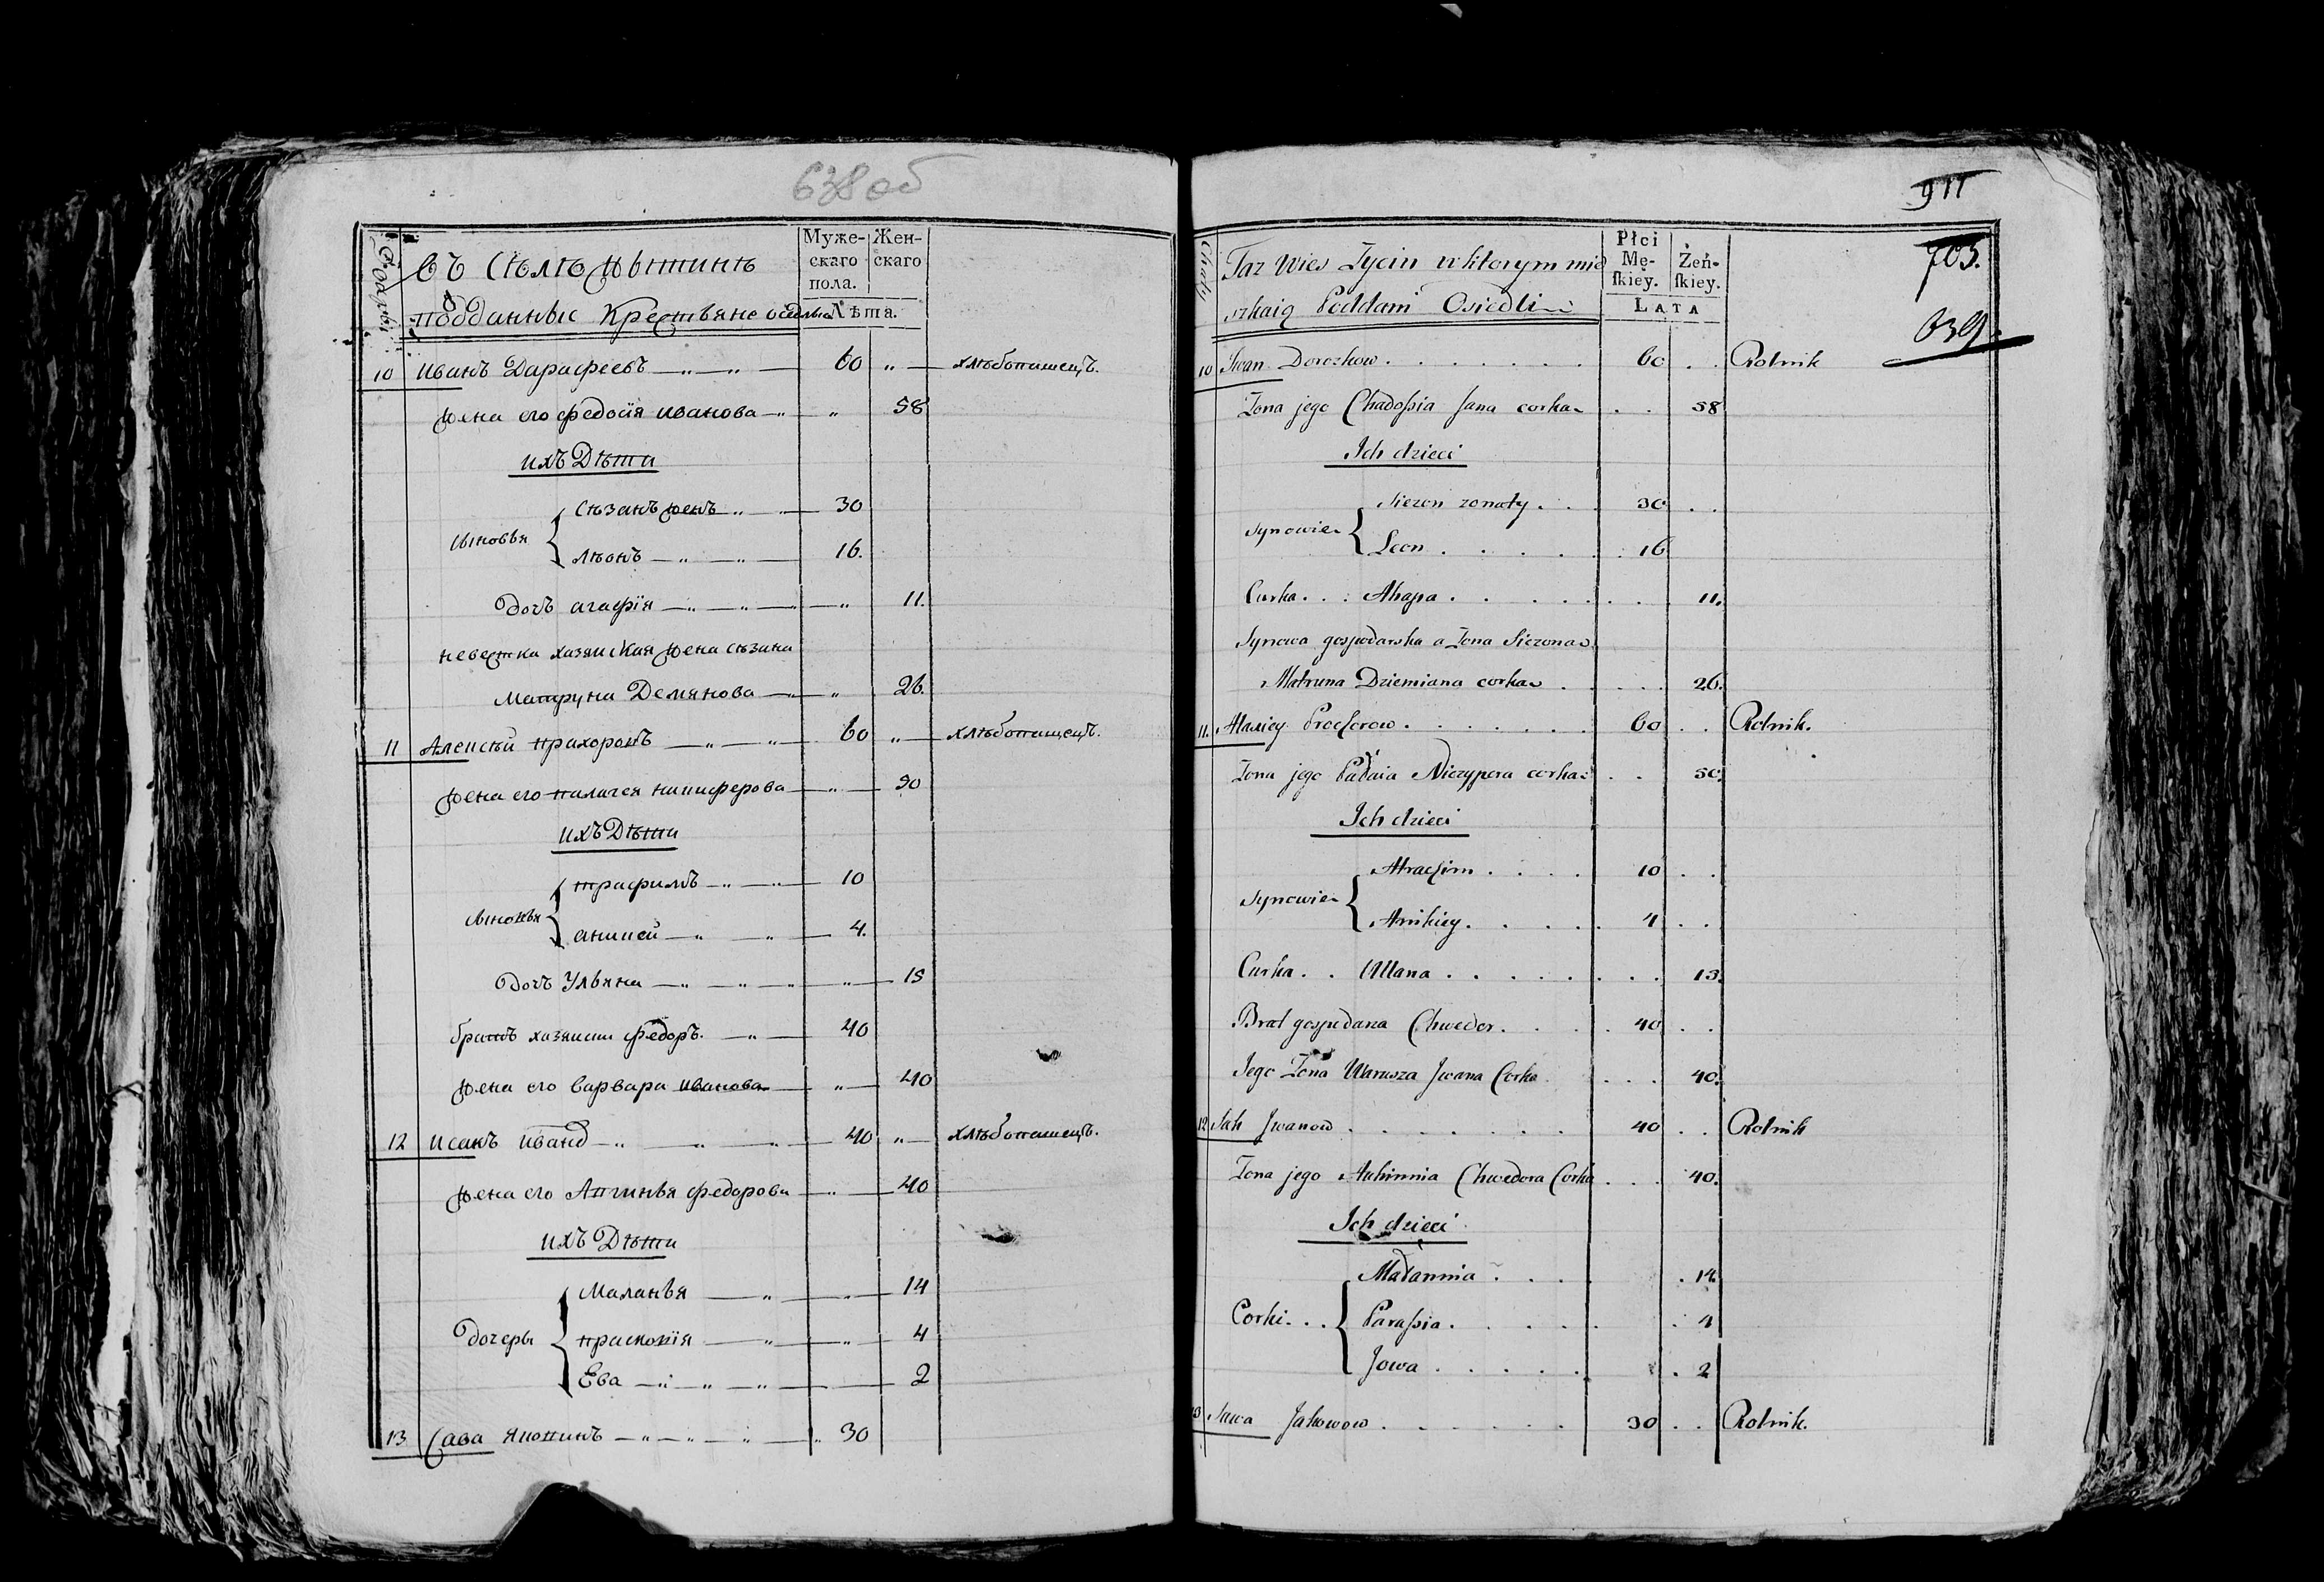 638 об
въ Селѣ Житинѣ
подданные Крестьяне оседлые
Муже-
скаго
пола.
Жен-
скаго
Лѣта.
10 Иванъ Дарафеевъ 60 " хлѣбопашецъ.
жена его федосія иванова " 58
ихъ Дѣти
сыновья
Сѣзанъ жен 30
Лѣонъ 16.
дочъ агафія " 11.
невестка хазяиская жена сѣзана
Матруна Демянова " 26.
11 Алексѣй прахоровъ 60 " хлѣбопашецъ.
жена его палагея никиферова " 50
ихъ Дѣти
сыновья
трафимъ 10
аникей 4.
дочъ Ульяна " 15
братъ хазяиски федоръ. 40
жена его варвара иванова " 40
12 исакъ иванъ 40 " хлѣбопашецъ.
жена его Апгинья федорова " 40
ихъ Дѣти
дочеры
Маланья " 14
прасковія " 4
Ева 2
13 Сава Якопинъ 30
911
703.
639.
Chaty
Taz Wies Zycin w ktorym mie
szkaią Poddani Osiedli
Płci
Mę-
ſkiey.
Żeń-
ſkiey.
LATA
10 Iwan Doroszkow 60 Rolnik
Zona jego Chadoſsia Jana corka 58
Ich dzieci
Synowie
Siezon zonaty 30
Leon 16
Curka Ahapa 11.
Synowa gospodarska a Zona Siezona
Matruna Dziemiana corka 26.
11. Alaxiey Prochorow 60 Rolnik.
Zona jego Pałaia Niezypora corka 50.
Ich dzieci
Synowie
Atrachim 10
Anikiey 4
Curka Ullana 15.
Brat gospodarza Chwedor 40
Jego Zona Warusza Jwana Corka 40.
12 Jsak Jwanow 40 Rolnik
Zona jego Auhinnia Chwedora Corka 40.
Ich dzieci
Corki
Małannia 14
Paraſsia 4
Jowa 2
13 Sawa Jakowow 30 Rolnik.